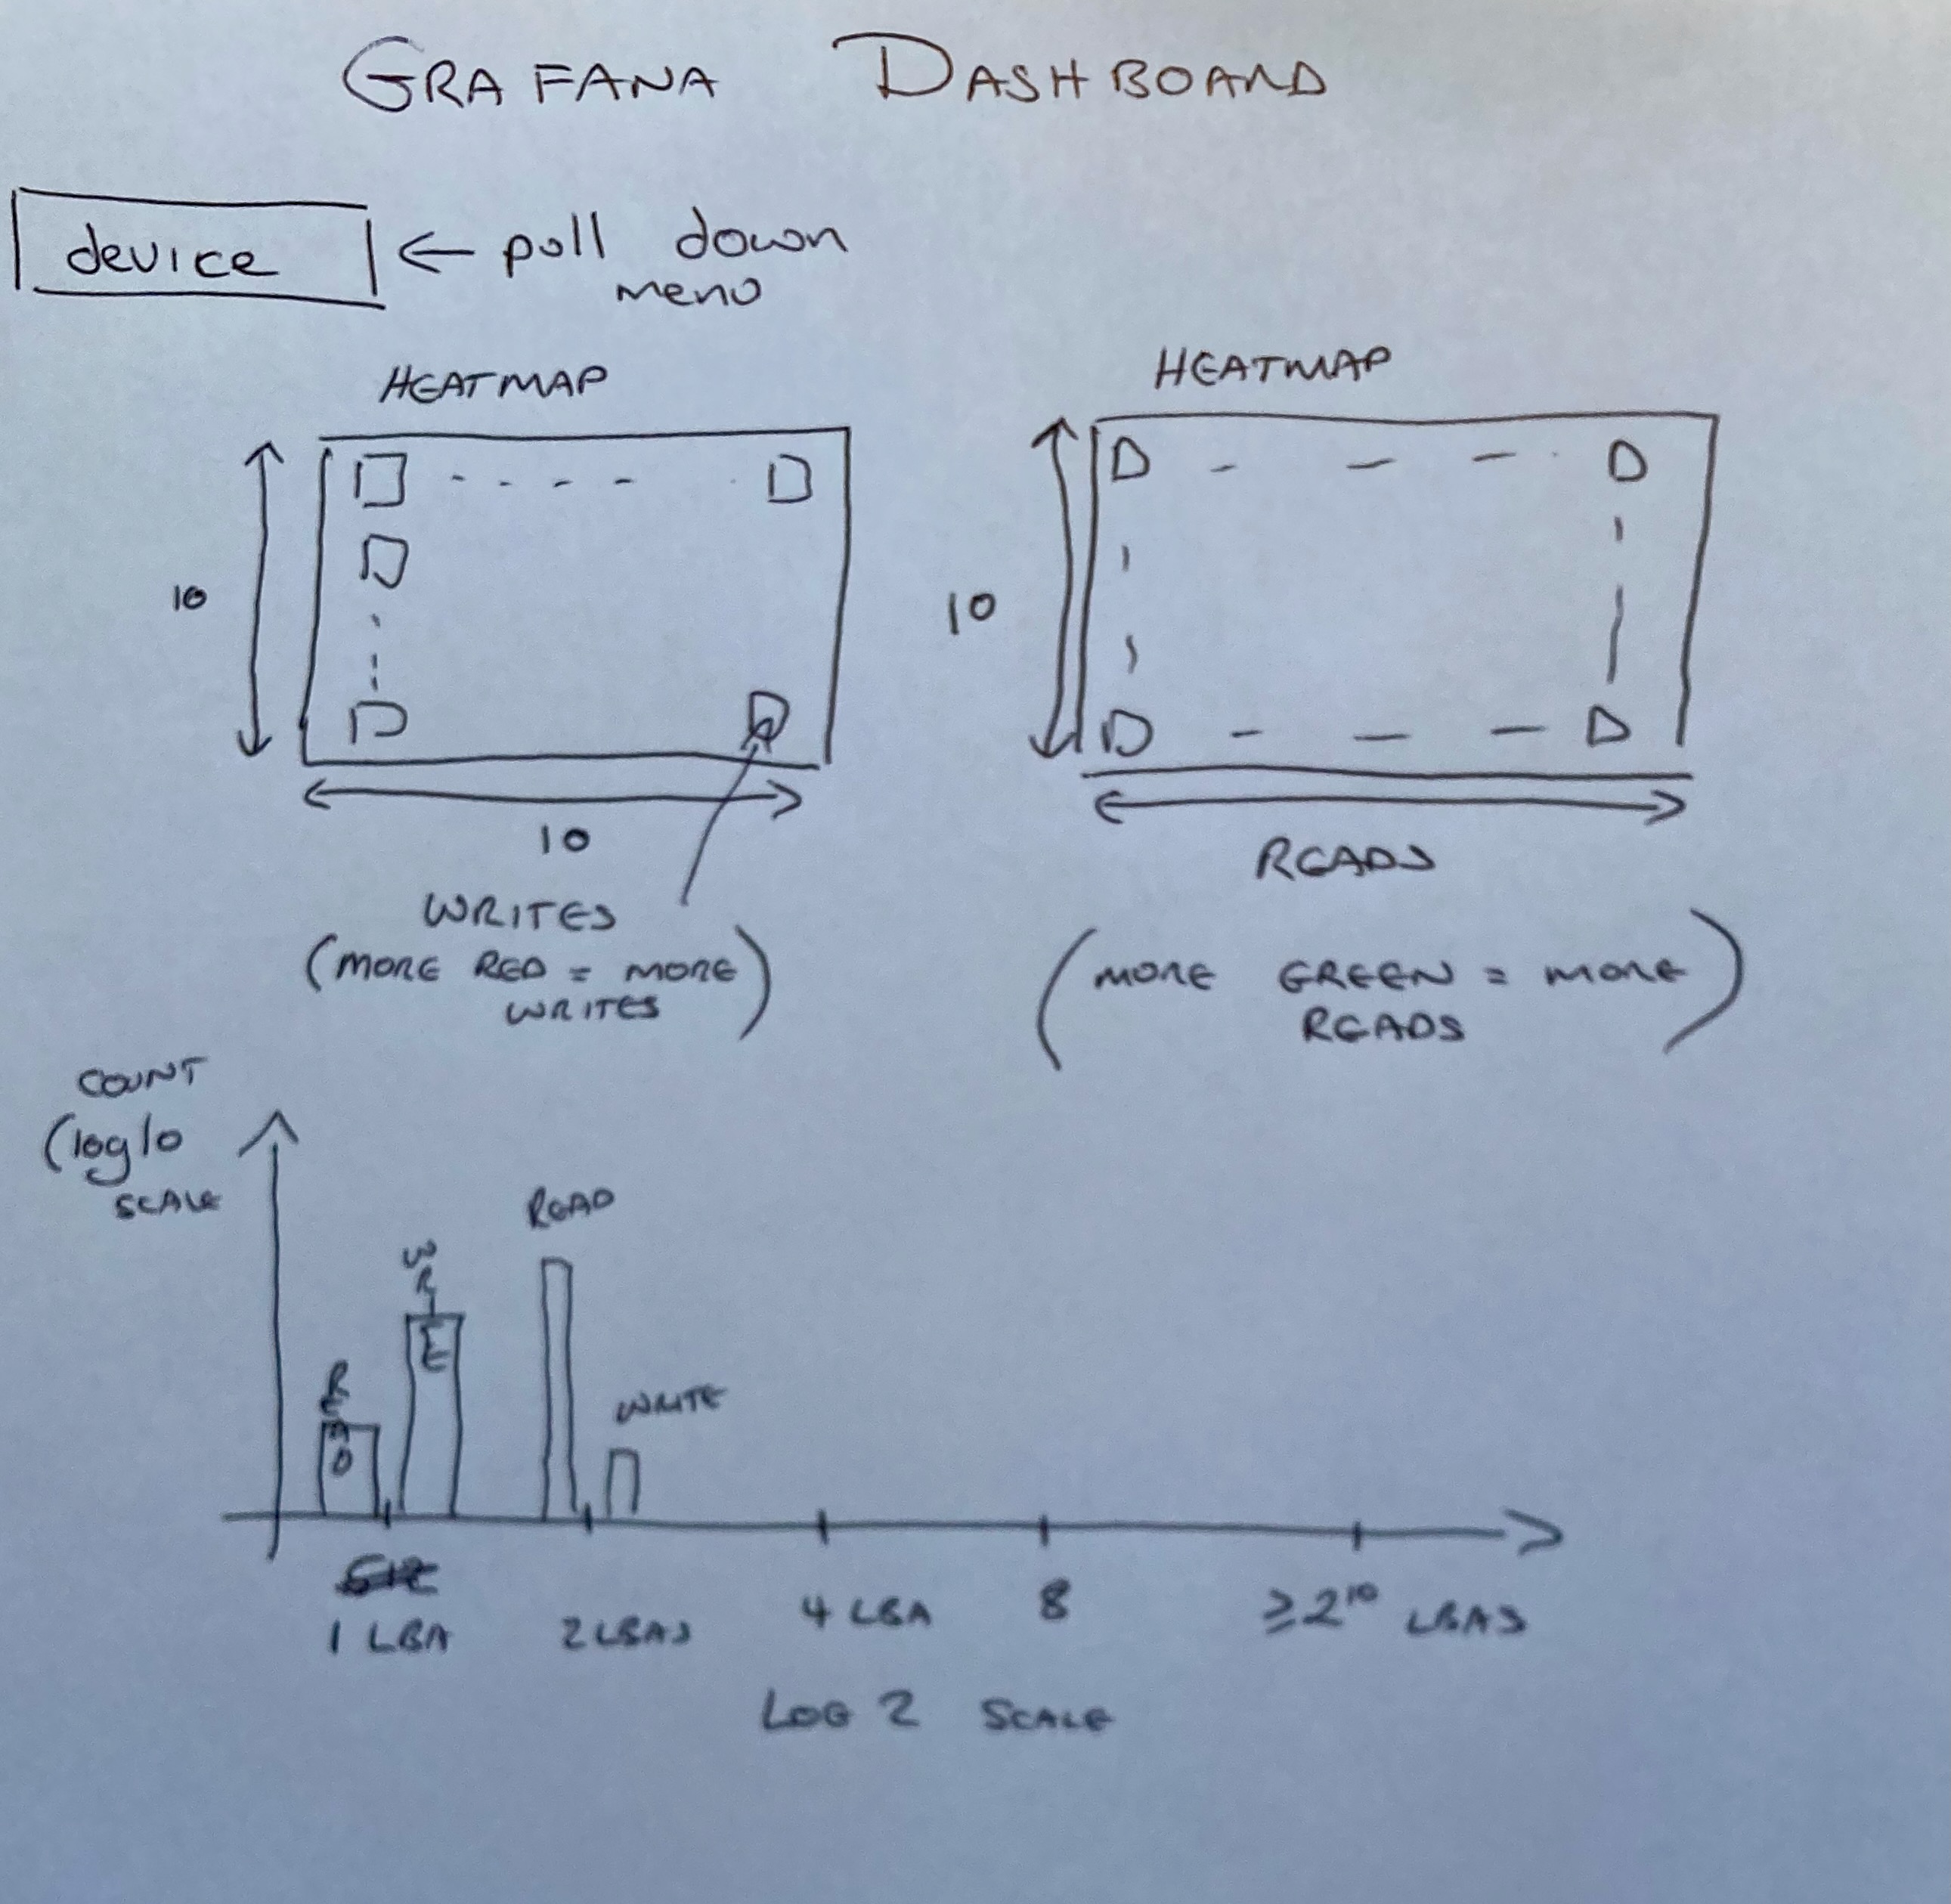 GRAFANA DASHBOARD
device ← pull down
menu
HEATMAP
HEATMAP
10
10
10
WRITES
(MORE RED = MORE
WRITES)
READS
(MORE GREEN = MORE
READS)
COUNT
(log10
SCALE
READ
WRITE
READ
WRITE
1 LBA
2 LBAS
4 LBA
8
≥2¹⁰ LBAS
LOG 2 SCALE